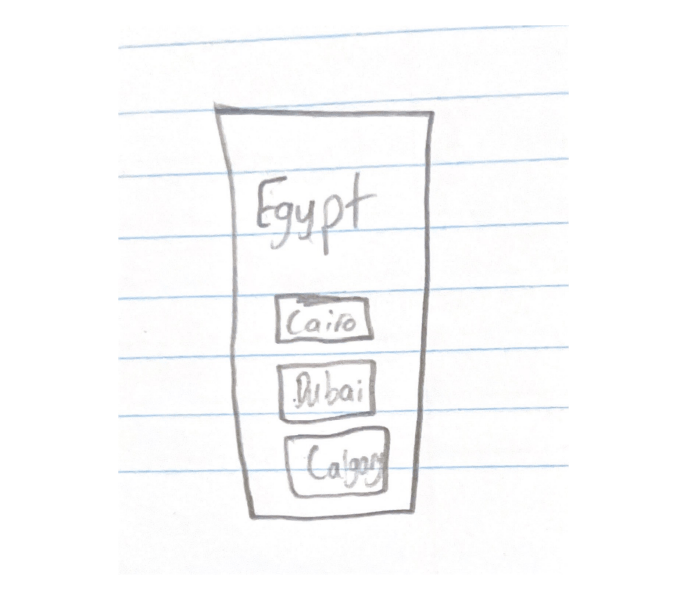 Egypt
Cairo
Dubai
Calgary